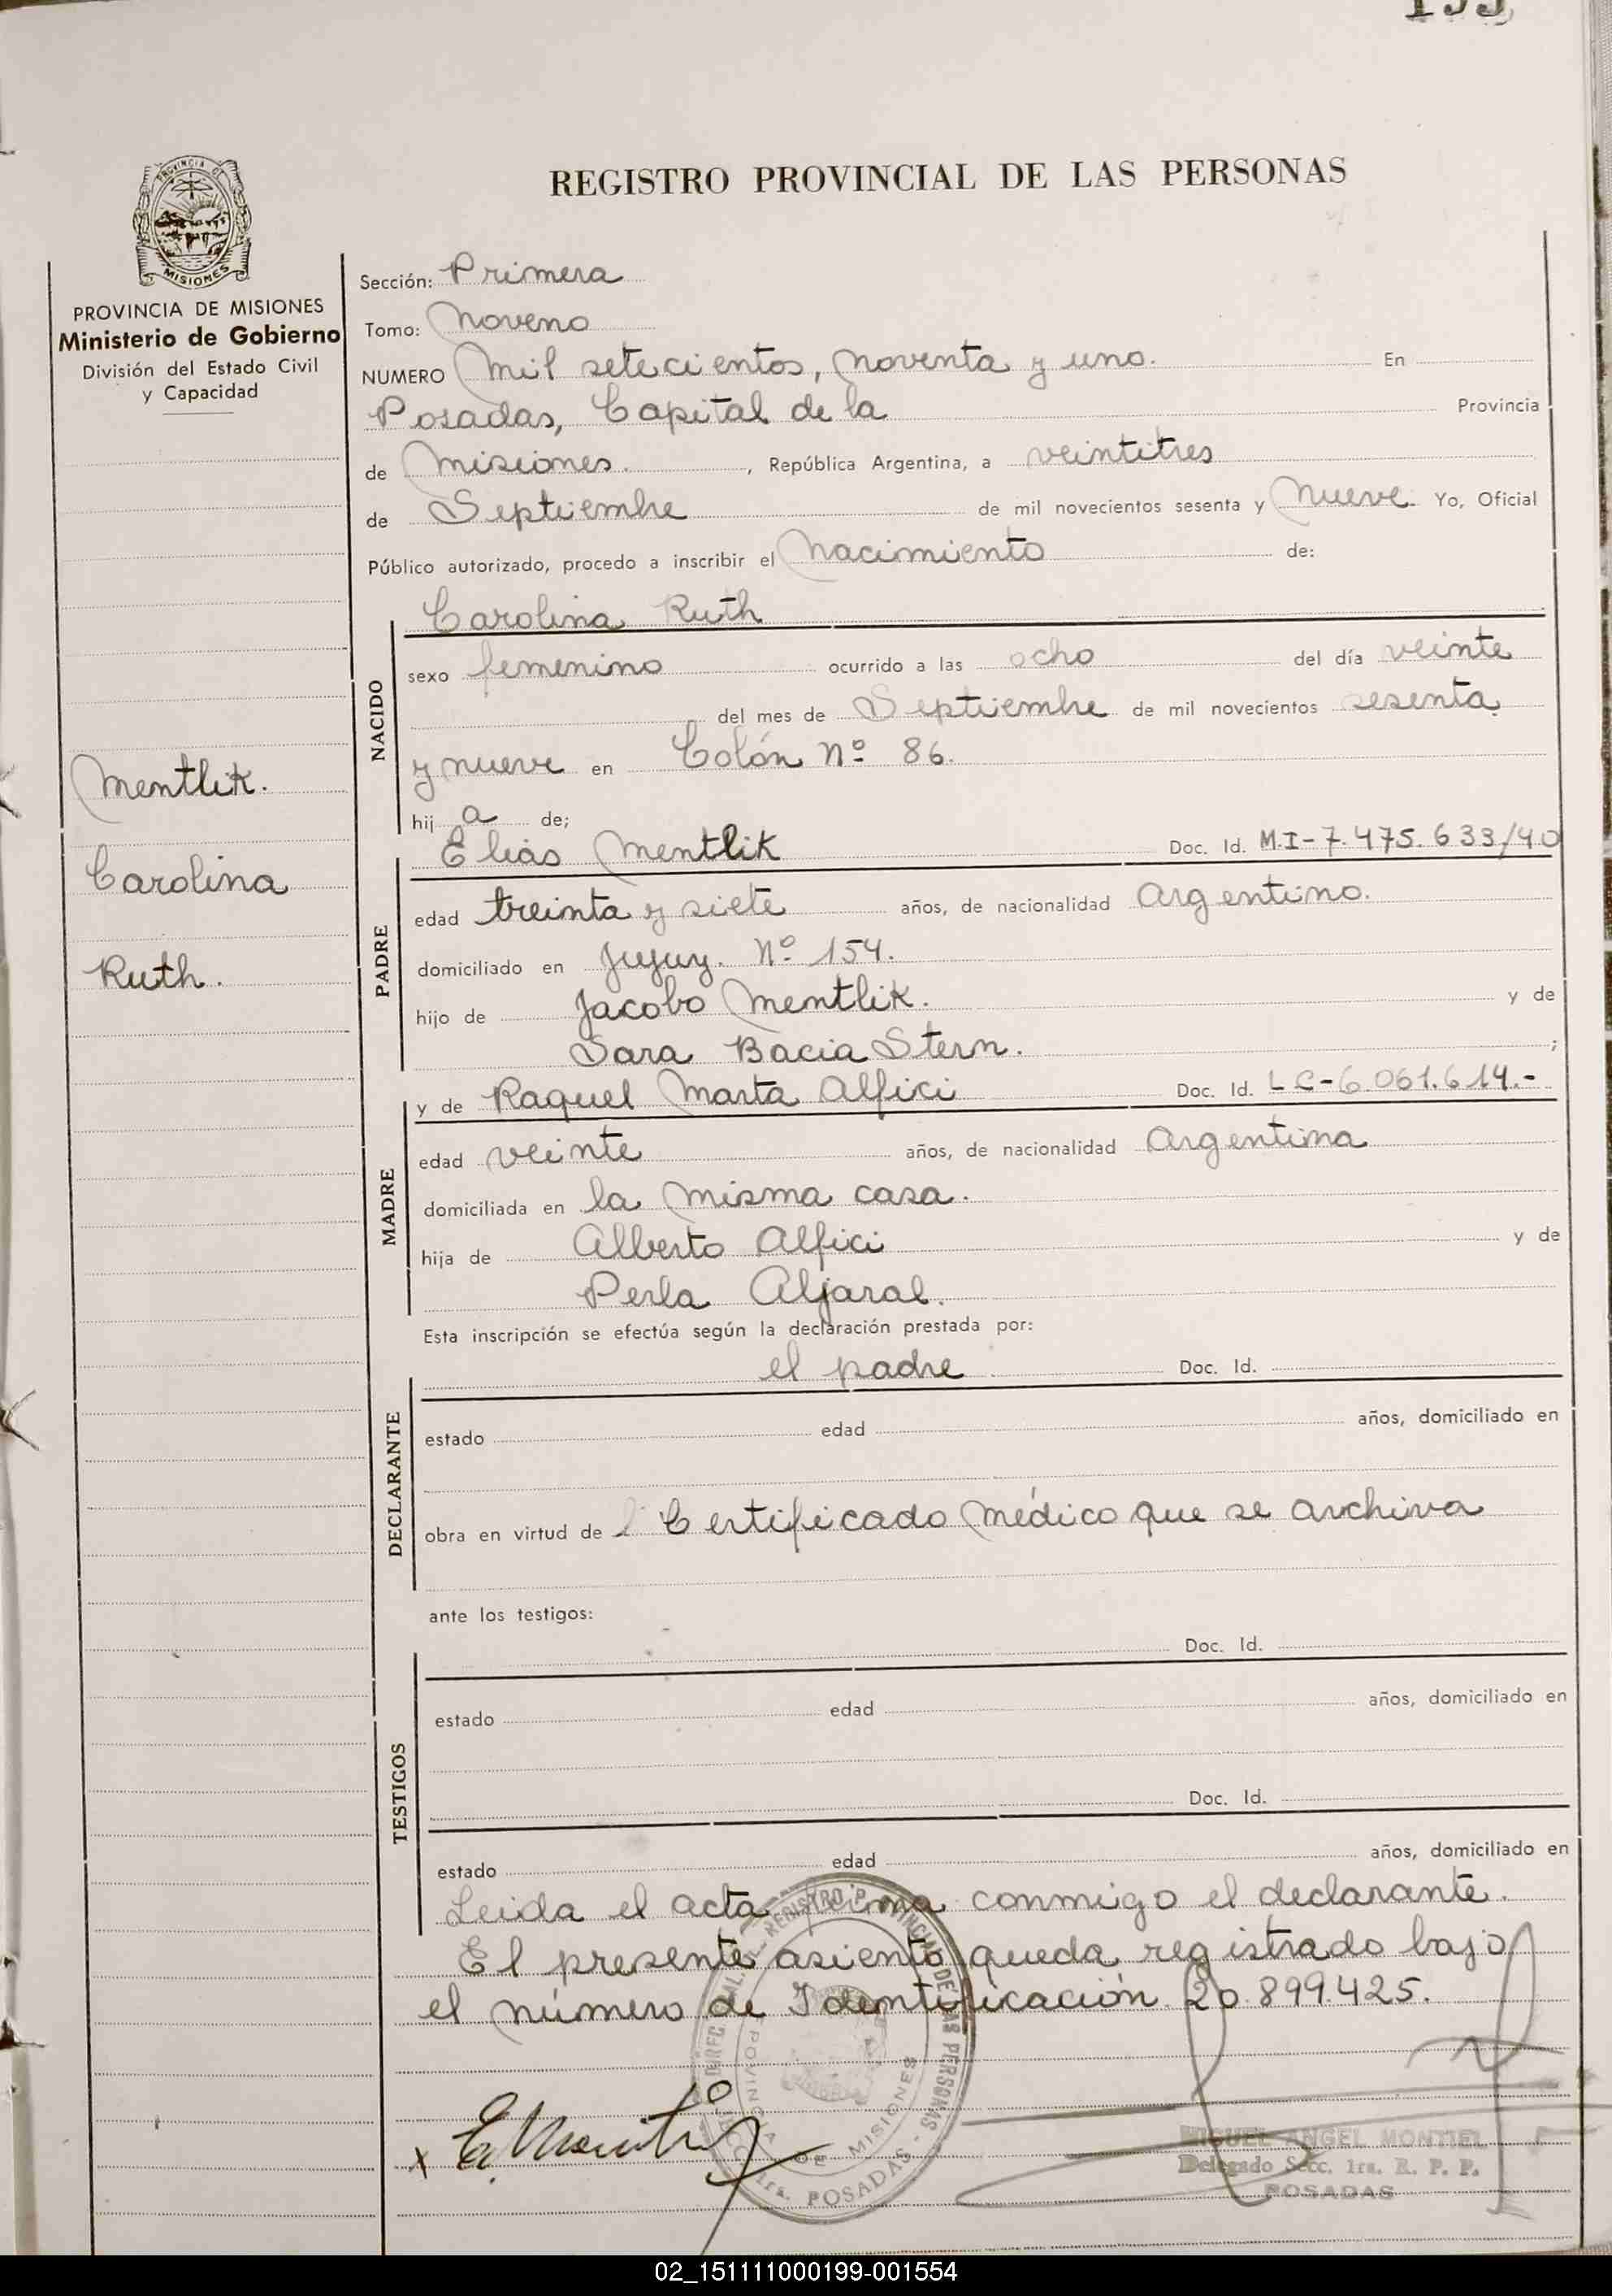 REGISTRO PROVINCIAL DE LAS PERSONAS
PROVINCIA DE
MISIONES
PROVINCIA DE MISIONES
Ministerio de Gobierno
División del Estado Civil
y Capacidad
Mentlik.
Carolina
Ruth.
Sección: Primera
Tomo: Noveno
NUMERO Mil setecientos, noventa y uno. En
Posadas, Capital de la Provincia
de Misiones. , República Argentina, a veintitres
de Septiembre de mil novecientos sesenta y Nueve. Yo, Oficial
Público autorizado, procedo a inscribir el Nacimiento de:
Carolina Ruth
NACIDO
sexo femenino ocurrido a las ocho del día veinte
del mes de Septiembre de mil novecientos sesenta
y nueve en Colón Nº 86.
hij a de;
Elias Mentlik Doc. Id. M.I-7.475.633/40
PADRE
edad treinta y siete años, de nacionalidad Argentino.
domiciliado en Jujuy. Nº 154.
hijo de Jacobo Mentlik. y de
Sara Bacia Stern. ;
y de Raquel Marta Alfici Doc. Id. L C-6.061.614.-
MADRE
edad veinte años, de nacionalidad Argentina
domiciliada en la misma casa.
hija de Alberto Alfici y de
Perla Aljaral.
Esta inscripción se efectúa según la declaración prestada por:
el padre Doc. Id.
DECLARANTE
estado edad años, domiciliado en
obra en virtud de Certificado Médico que se archiva
ante los testigos:
Doc. Id.
TESTIGOS
estado edad años, domiciliado en
Doc. Id.
estado edad años, domiciliado en
Leida el acta firma conmigo el declarante.
El presente asiento queda registrado bajo
el número de Identificación 20.899.425.
REGISTRO PROVINCIAL DE LAS PERSONAS
PROVINCIA DE MISIONES
1ra. POSADAS
x E. Mentlik
MIGUEL ANGEL MONTIEL
Delegado Secc. 1ra. R. P. P.
POSADAS
02_151111000199-001554